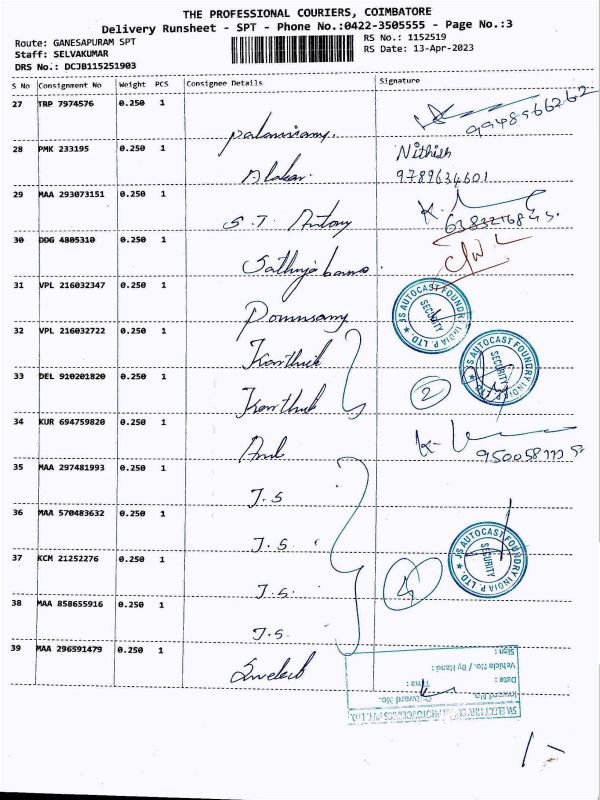 THE PROFESSIONAL COURIERS, COIMBATORE
Delivery Runsheet - SPT - Phone No.:0422-3505555 - Page No.:3
Route: GANESAPURAM SPT
Staff: SELVAKUMAR
DRS No.: DCJB115251903
RS No.: 1152519
RS Date: 13-Apr-2023
S No Consignment No Weight PCS Consignee Details Signature
27 TRP 7974576 0.250 1
Palanisamy.
9948566262
28 PMK 233195 0.250 1
Nithish
9789634601
29 MAA 293073151 0.250 1
S.T. Antony
30 DDG 4805310 0.250 1
31 VPL 216032347 0.250 1
JS AUTOCAST FOUNDRY INDIA P. LTD.
SECURITY
Ponnusamy
32 VPL 216032722 0.250 1
Karthik
JS AUTOCAST FOUNDRY INDIA P. LTD.
SECURITY
33 DEL 910201820 0.250 1
Karthik
2
34 KUR 694759820 0.250 1
35 MAA 297481993 0.250 1
J.S
36 MAA 570483632 0.250 1
J.S
JS AUTOCAST FOUNDRY INDIA P. LTD.
SECURITY
37 KCM 21252276 0.250 1
J.S.
38 MAA 858655916 0.250 1
J.S.
39 MAA 296591479 0.250 1
Sign :
Vehicle No. / By Hand :
Date :
Inward No.
1-